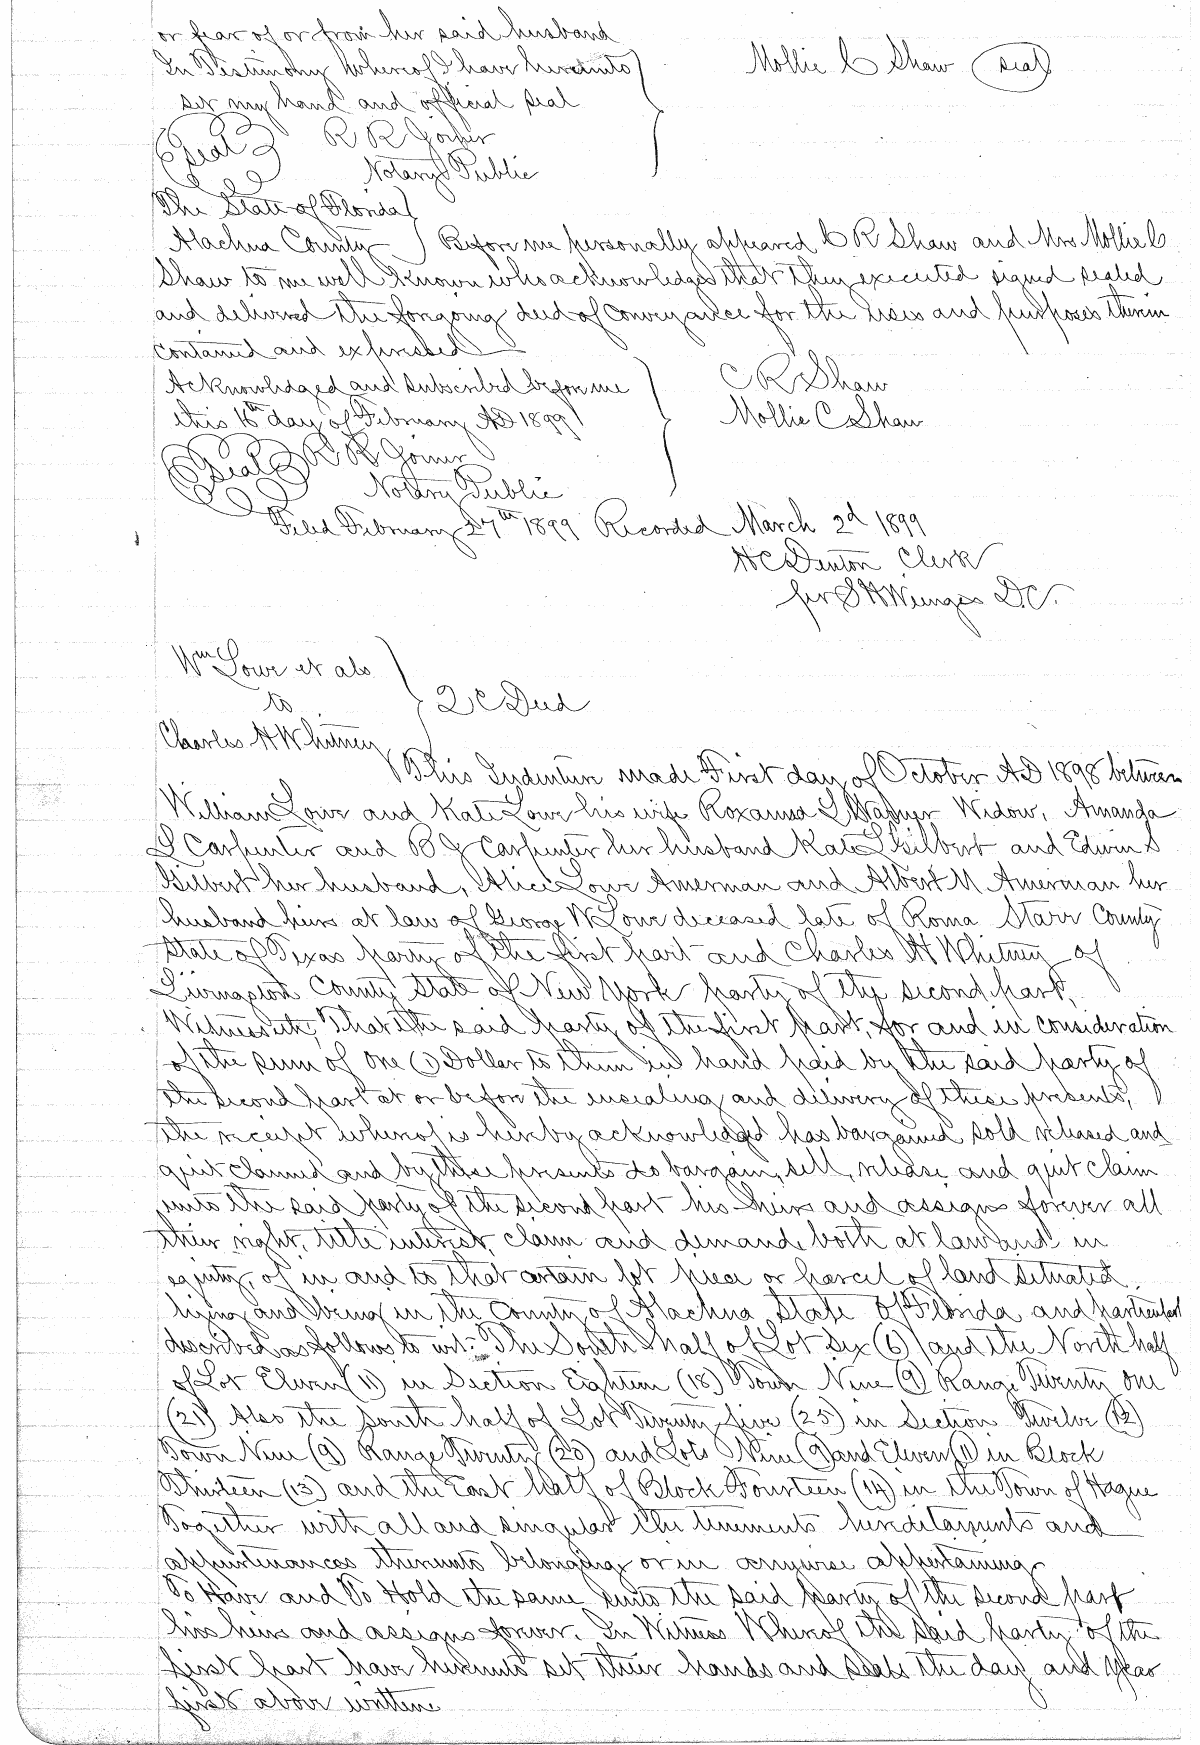 or fear of or from her said husband
In Testimony Whereof I have hereunto
set my hand and official seal
Mollie C Shaw (seal)
(Seal) R R
Notary Public
The State of Florida
Alachua County Before me personally appeared C R Shaw and Mrs Mollie C
Shaw to me well known who acknowledges that they executed signed sealed
and delivered the forgoing deed of conveyance for the uses and purposes therein
contained and expressed
Acknowledged and subscribed before me
this 16th day of February AD 1899
C R Shaw
Mollie C Shaw
(Seal) R R
Notary Public
Filed February 27th 1899 Recorded March 2d 1899
H C Denton Clerk
per S H Wienges D.C.
Wm Lowe et als
to
Charles H Whitney
2 C Deed
This Indenture made First day of October AD 1898 between
William Lowe and Kate Lowe his wife Roxanna L Widow, Amanda
L Carpenter and B J Carpenter her husband Kate L Gilbert and Edwin S
Gilbert her husband, Alice Lowe Amerman and Albert M Amerman her
husband heirs at law of George W Lowe deceased late of Roma Starr County
State of Texas party of the first part and Charles H Whitney of
Livingston County State of New York party of the second part,
Witnesseth, That the said party of the first part, for and in consideration
of the sum of one (1) Dollar to them in hand paid by the said party of
the second part at or before the ensealing and delivery of these presents,
the receipt whereof is hereby acknowledged has bargained sold released and
quit claimed and by these presents do bargain, sell, release and quit claim
unto the said party of the second part his heirs and assigns forever all
their right, title interest, claim and demand, both at law and in
equity, of in and to that certain lot piece or parcel of land situated
lying and being in the County of Alachua State of Florida and particularl
described as follows to wit:- The South half of Lot six (6) and the North half
of Lot Eleven (11) in Section Eighteen (18) Town Nine (9) Range Twenty one
(21) Also the south half of Lot Twenty five (25) in Section Twelve (12)
Town Nine (9) Range Twenty (20) and Lots Nine (9) and Eleven (11) in Block
Thirteen (13) and the East half of Block Fourteen (14) in the Town of Hague
Together with all and singular the tenements hereditaments and
appurtenances thereunto belonging or in anywise appertaining
To Have and To Hold the same unto the said party of the second part
his heirs and assigns forever. In Witness Whereof the said party of the
first part have hereunto set their hands and seals the day and year
first above written